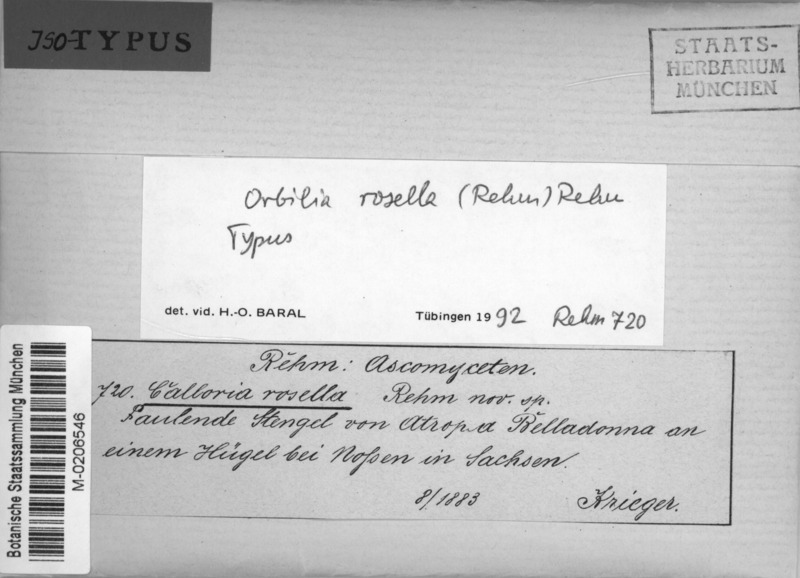 ISO-TYPUS
STAATS-
HERBARIUM
MÜNCHEN
Orbilia rosella (Rehm) Rehm
Typus
det. vid. H.-O. BARAL
Tübingen 1992 Rehm 720
Rehm: Ascomyceten.
720. Calloria rosella Rehm nov. sp.
Faulende Stengel von Atropa Belladonna an
einem Hügel bei Noßen in Sachsen.
8/1883 Krieger.
Botanische Staatssammlung München
M-0206546